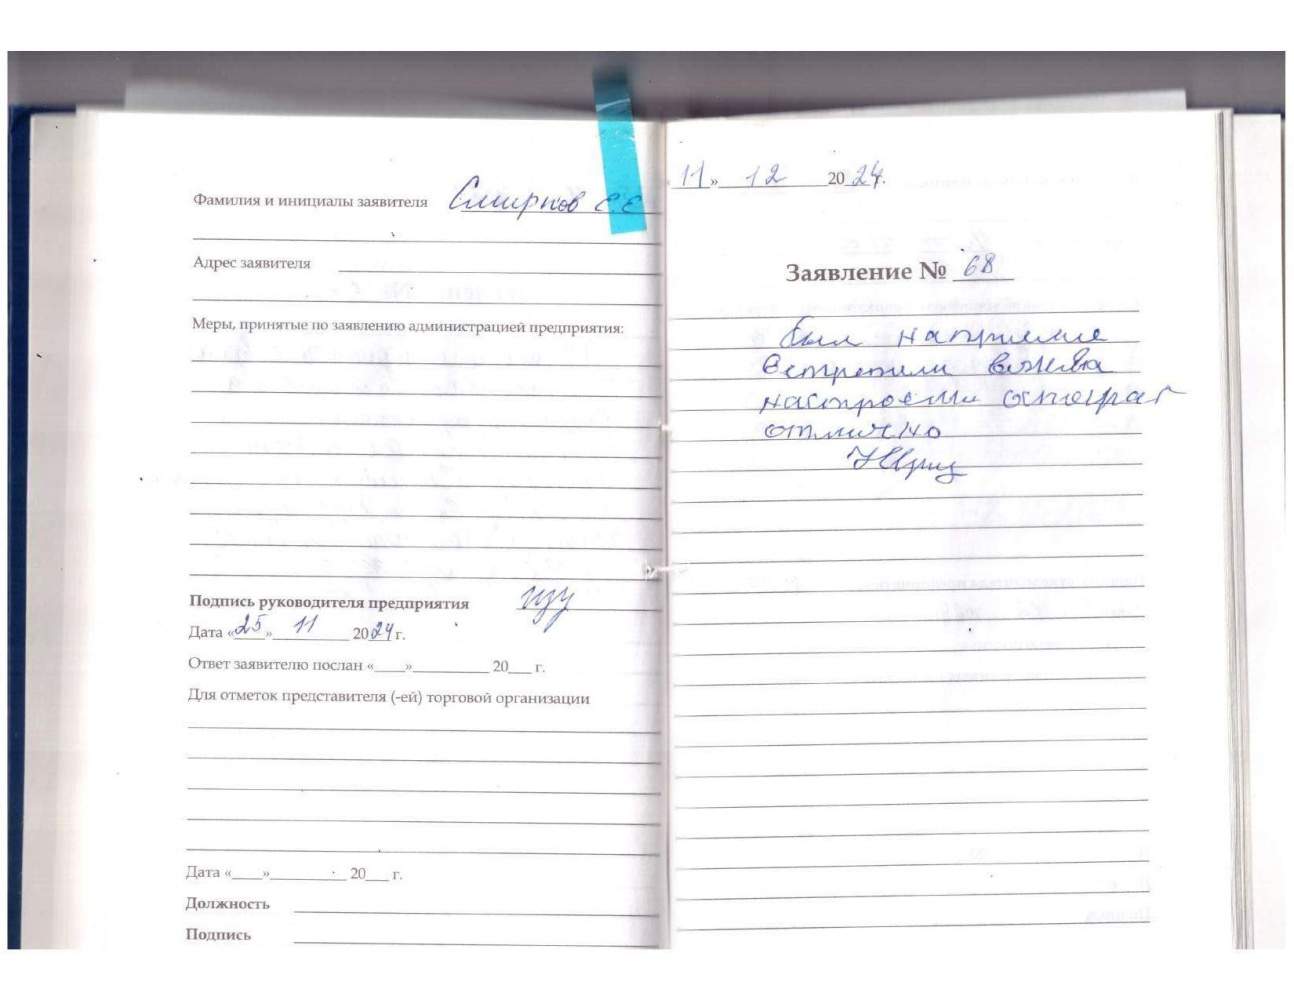 Фамилия и инициалы заявителя Смирнов С.Е
Адрес заявителя
Меры, принятые по заявлению администрацией предприятия:
Подпись руководителя предприятия
Дата «25» 11 2024 г.
Ответ заявителю послан «____»__________ 20___ г.
Для отметок представителя (-ей) торговой организации
Дата «____»__________ 20___ г.
Должность
Подпись
«11» 12 2024г.
Заявление № 68
был на приеме
Встретили
отлично